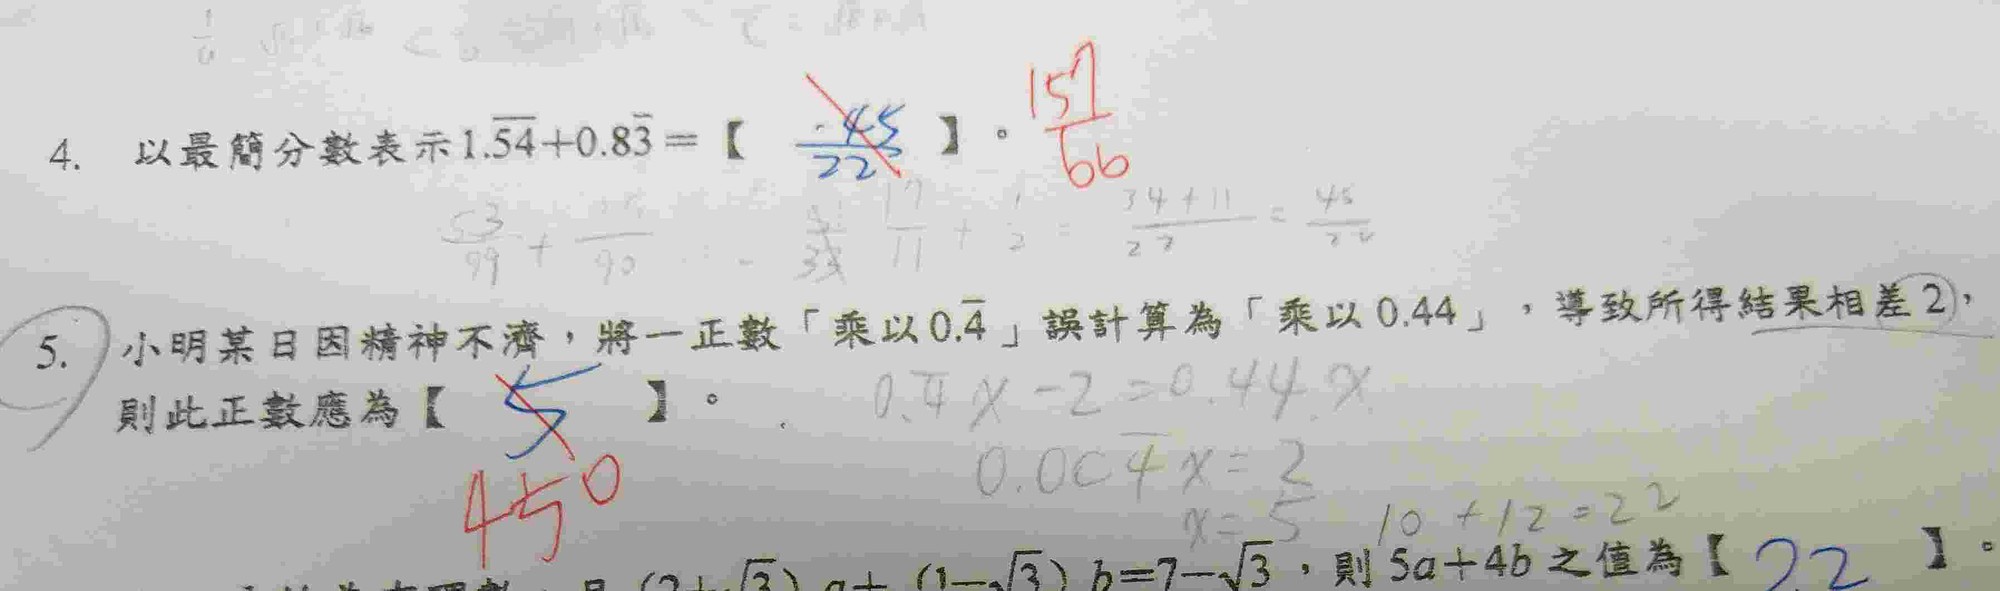 4. 以最簡分數表示 1.\overline{54}+0.8\overline{3}=【 45/22 】。 157/66
53/99 +   /90   17/11 + 1/2 = 34+11/22 = 45/22
5. 小明某日因精神不濟，將一正數「乘以0.\overline{4}」誤計算為「乘以0.44」，導致所得結果相差2，
則此正數應為【 5 】。
450
0.\overline{4}x-2=0.44x
0.00\overline{4}x=2
x=5 10+12=22
(2+√3)a+(1-√3)b=7-√3，則5a+4b之值為【 22 】。